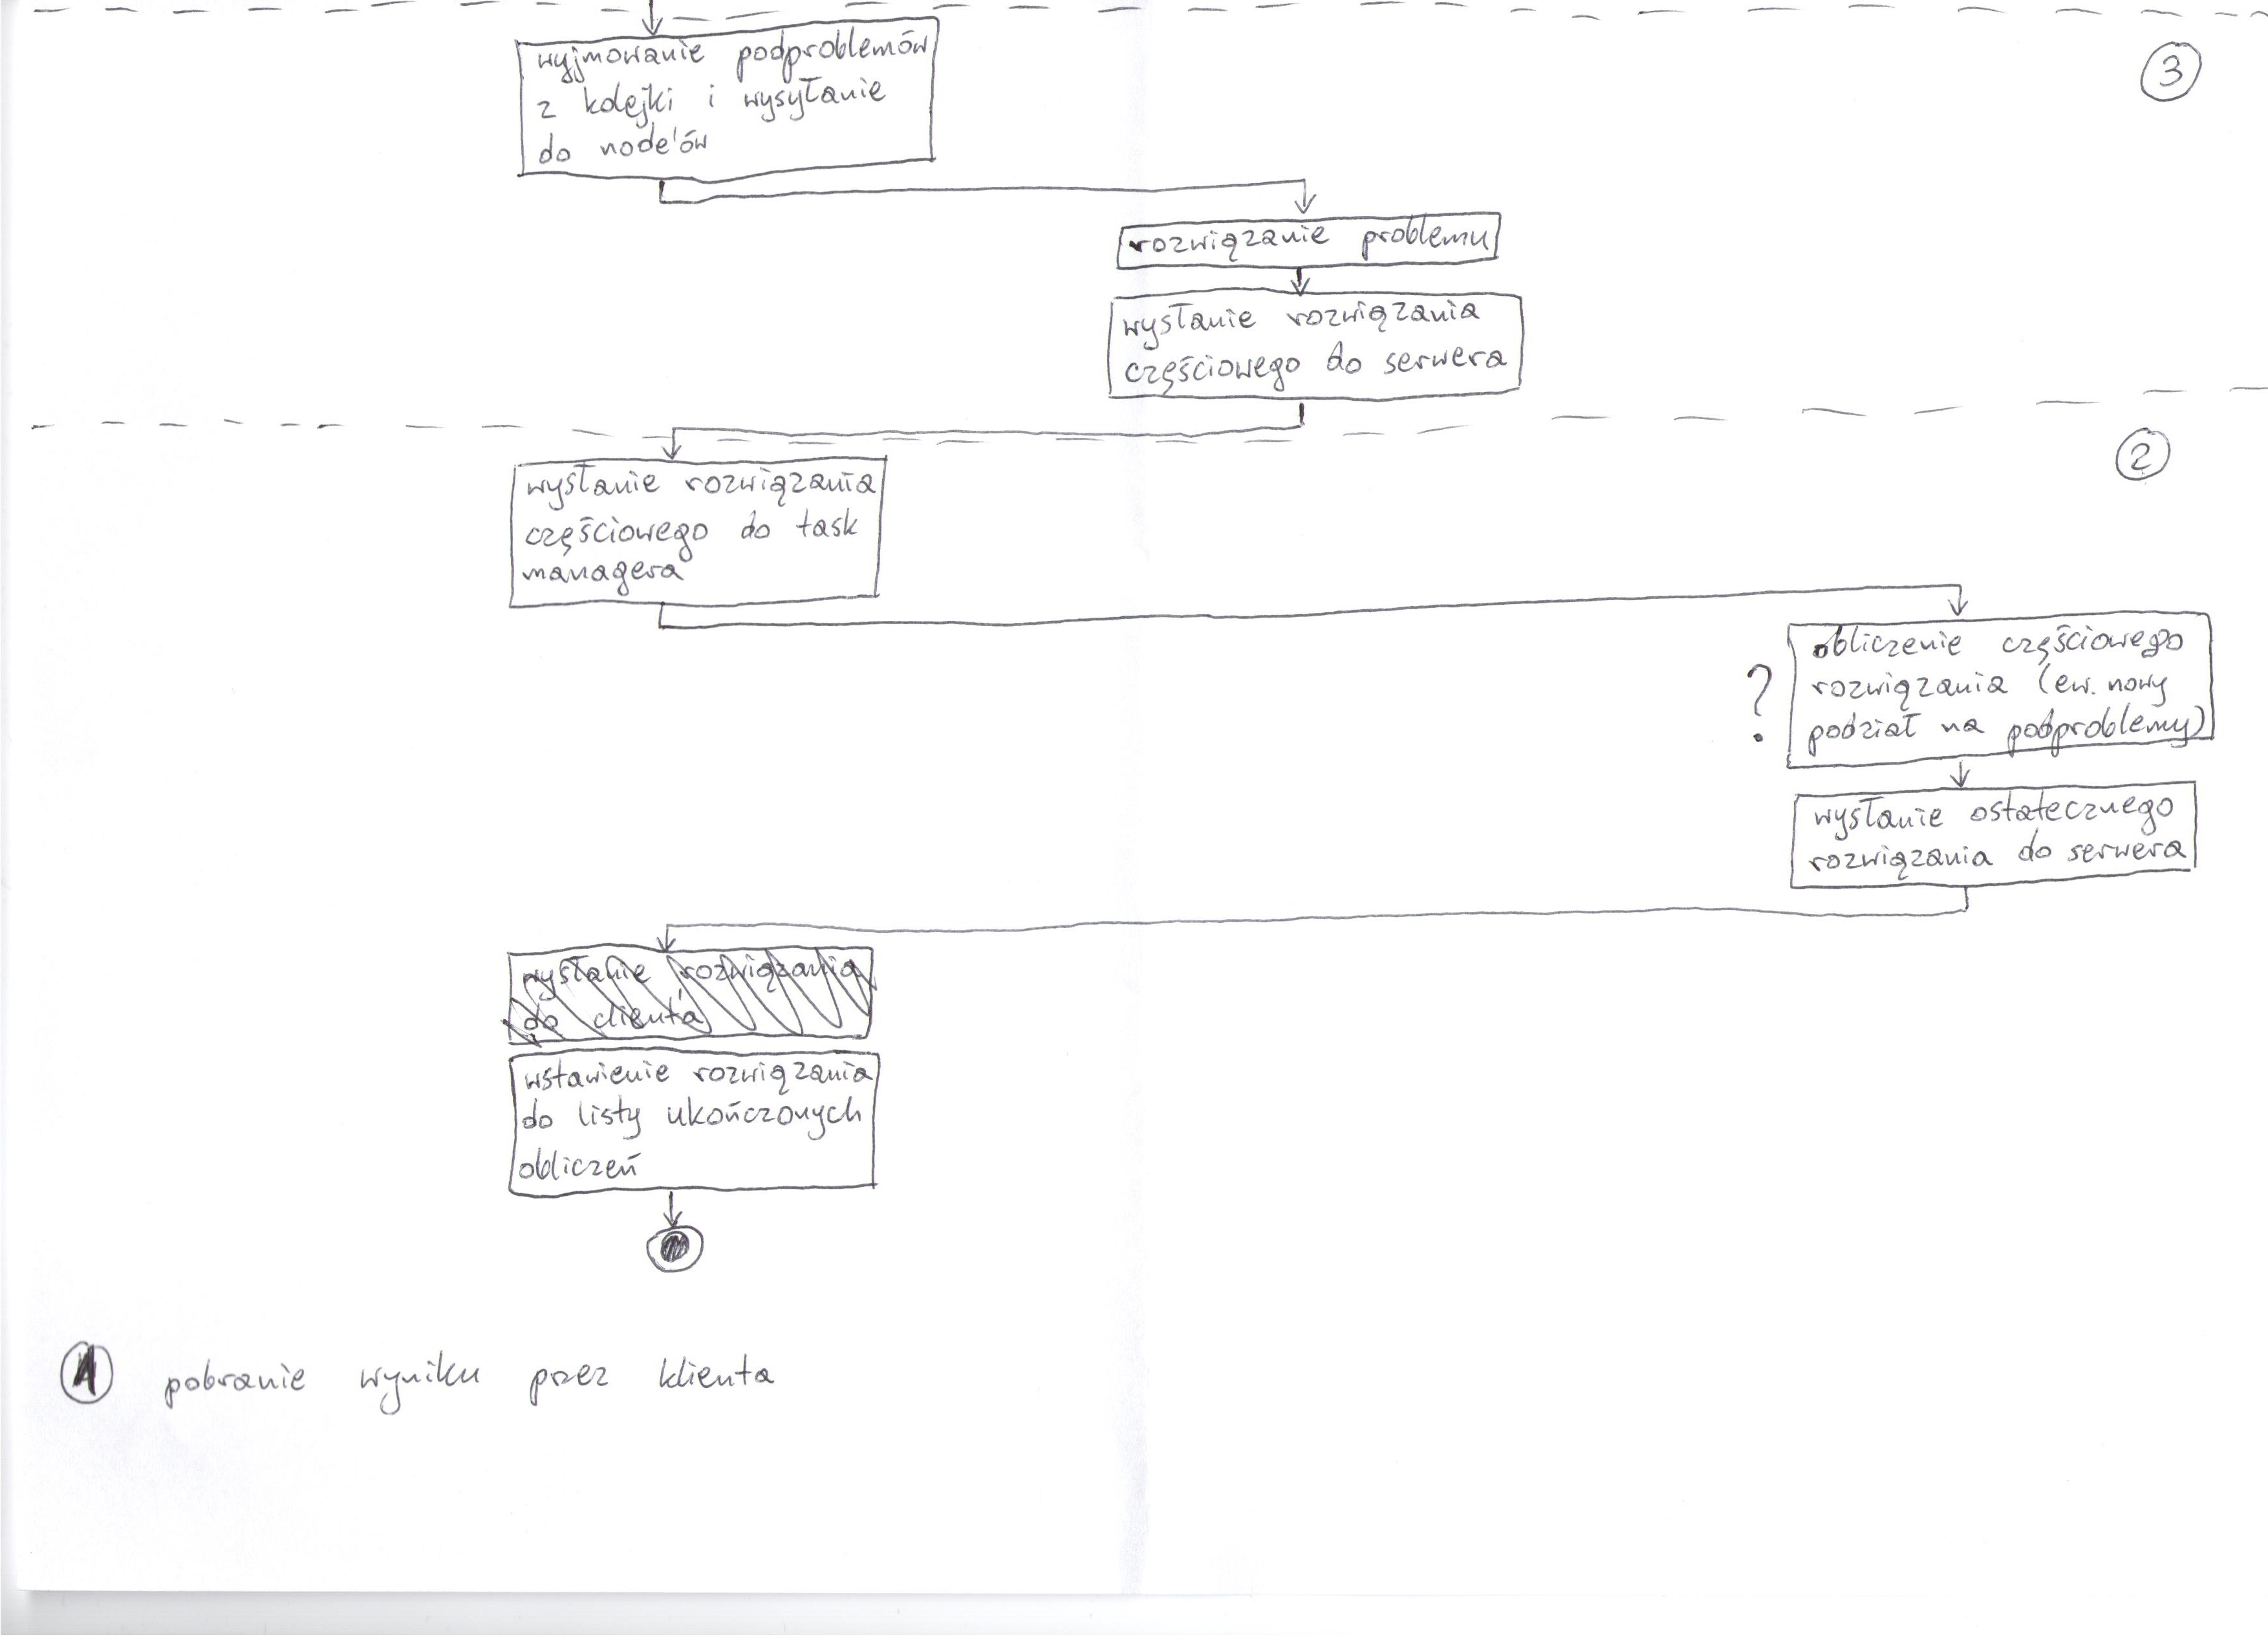 wyjmowanie podproblemów
z kolejki i wysyłanie
do node'ów
3
rozwiązanie problemu
wysłanie rozwiązania
częściowego do serwera
2
wysłanie rozwiązania
częściowego do task
managera
?
obliczenie częściowego
rozwiązania (ew. nowy
podział na podproblemy)
wysłanie ostatecznego
rozwiązania do serwera
wysłanie rozwiązania
do clienta
wstawienie rozwiązania
do listy ukończonych
obliczeń
1 pobranie wyniku przez klienta